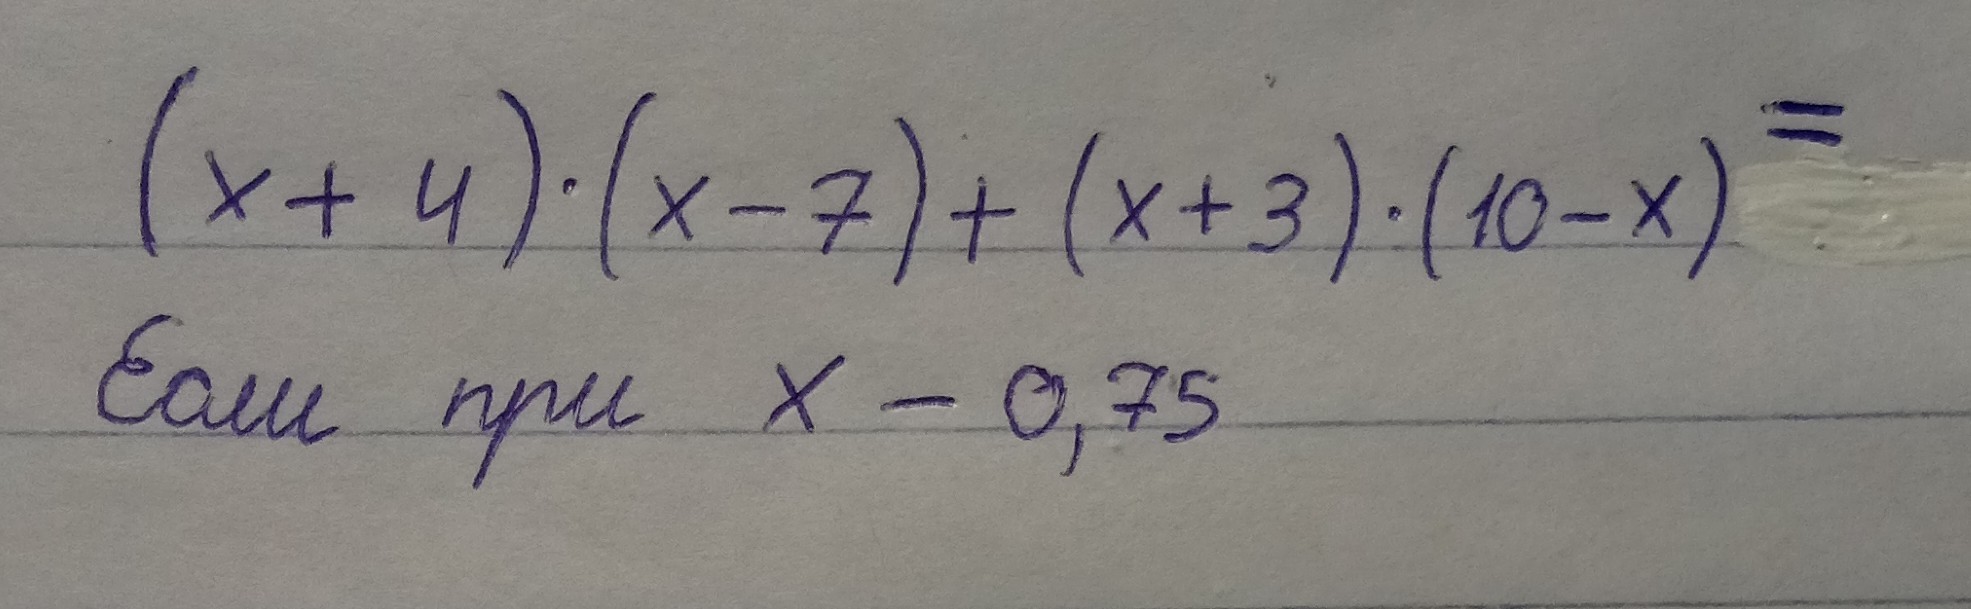 (x+4)·(x-7)+(x+3)·(10-x)=
Если при x - 0,75